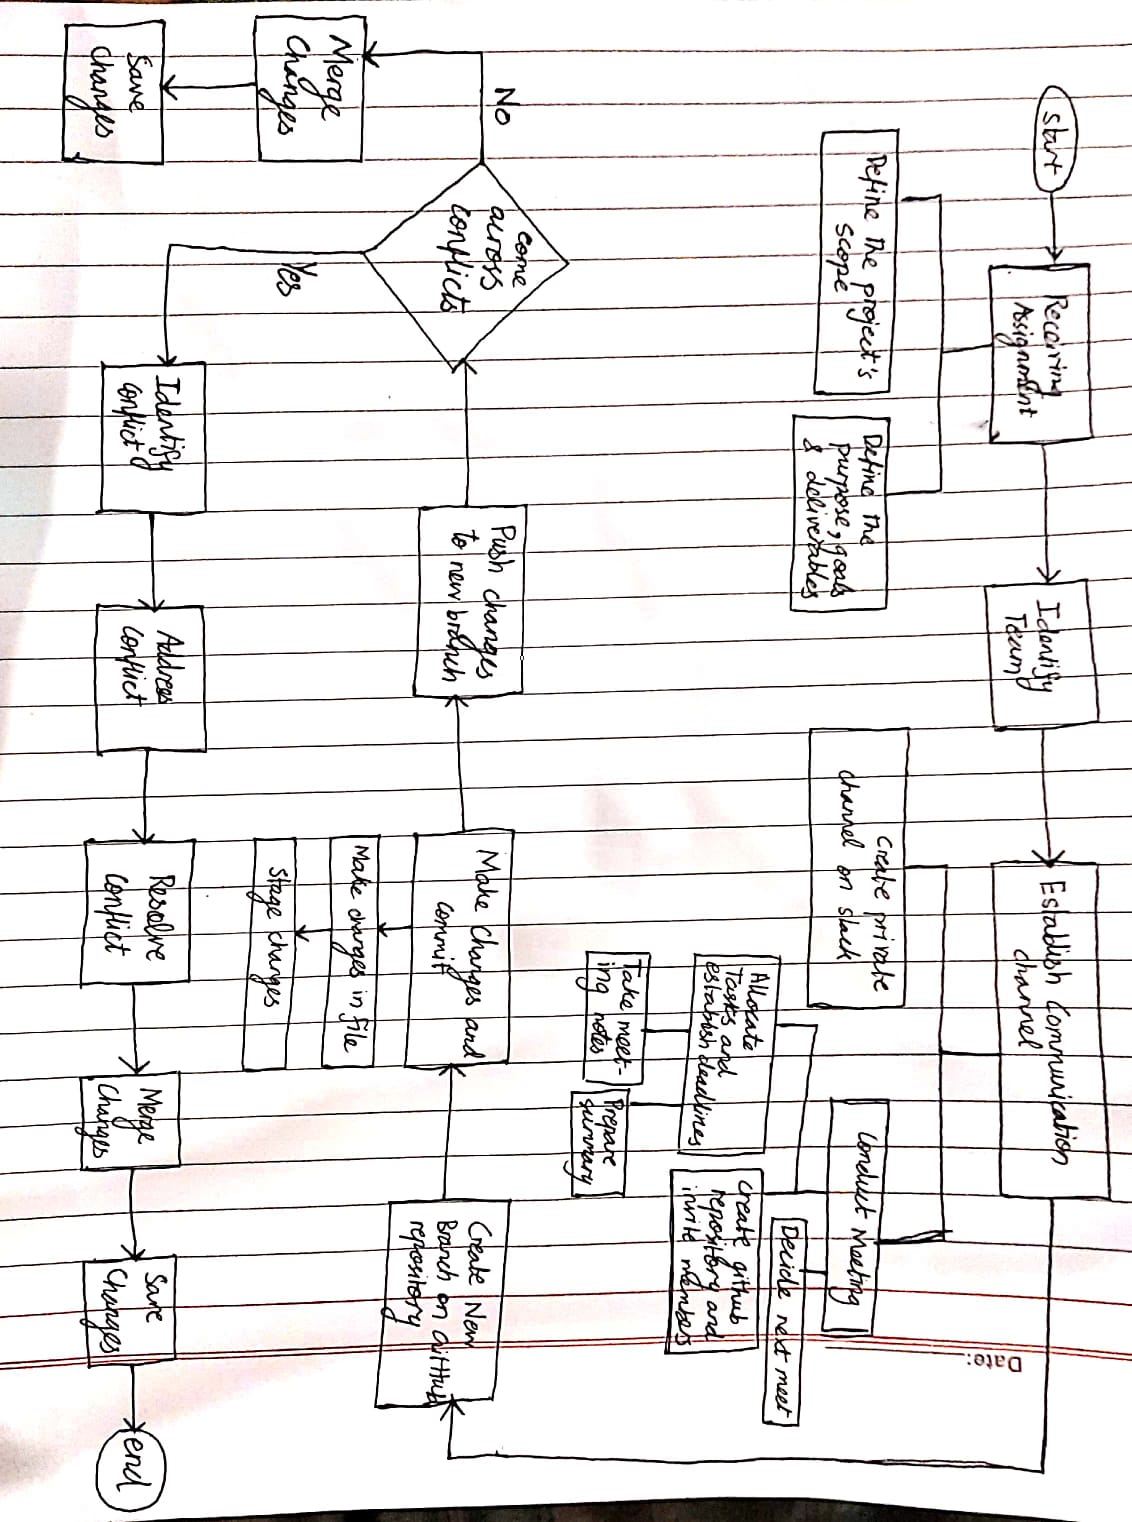 Date:
start
Receiving
Assignment
Identify
Team
Establish Communication
channel
Define the project's
scope
Define the
purpose, goals
& deliverables
create private
channel on slack
Conduct Meeting
Allocate
Tasks and
establish deadlines
Take meet-
ing notes
Prepare
summary
Create github
repository and
invite members
Decide next meet
Create New
Branch on GitHub
repository
Make Changes and
commit
Make changes in file
Stage changes
Push changes
to new branch
come
across
conflicts
No
Merge
Changes
Save
changes
Yes
Identify
conflict
Address
conflict
Resolve
Conflict
Merge
Changes
Save
Changes
end